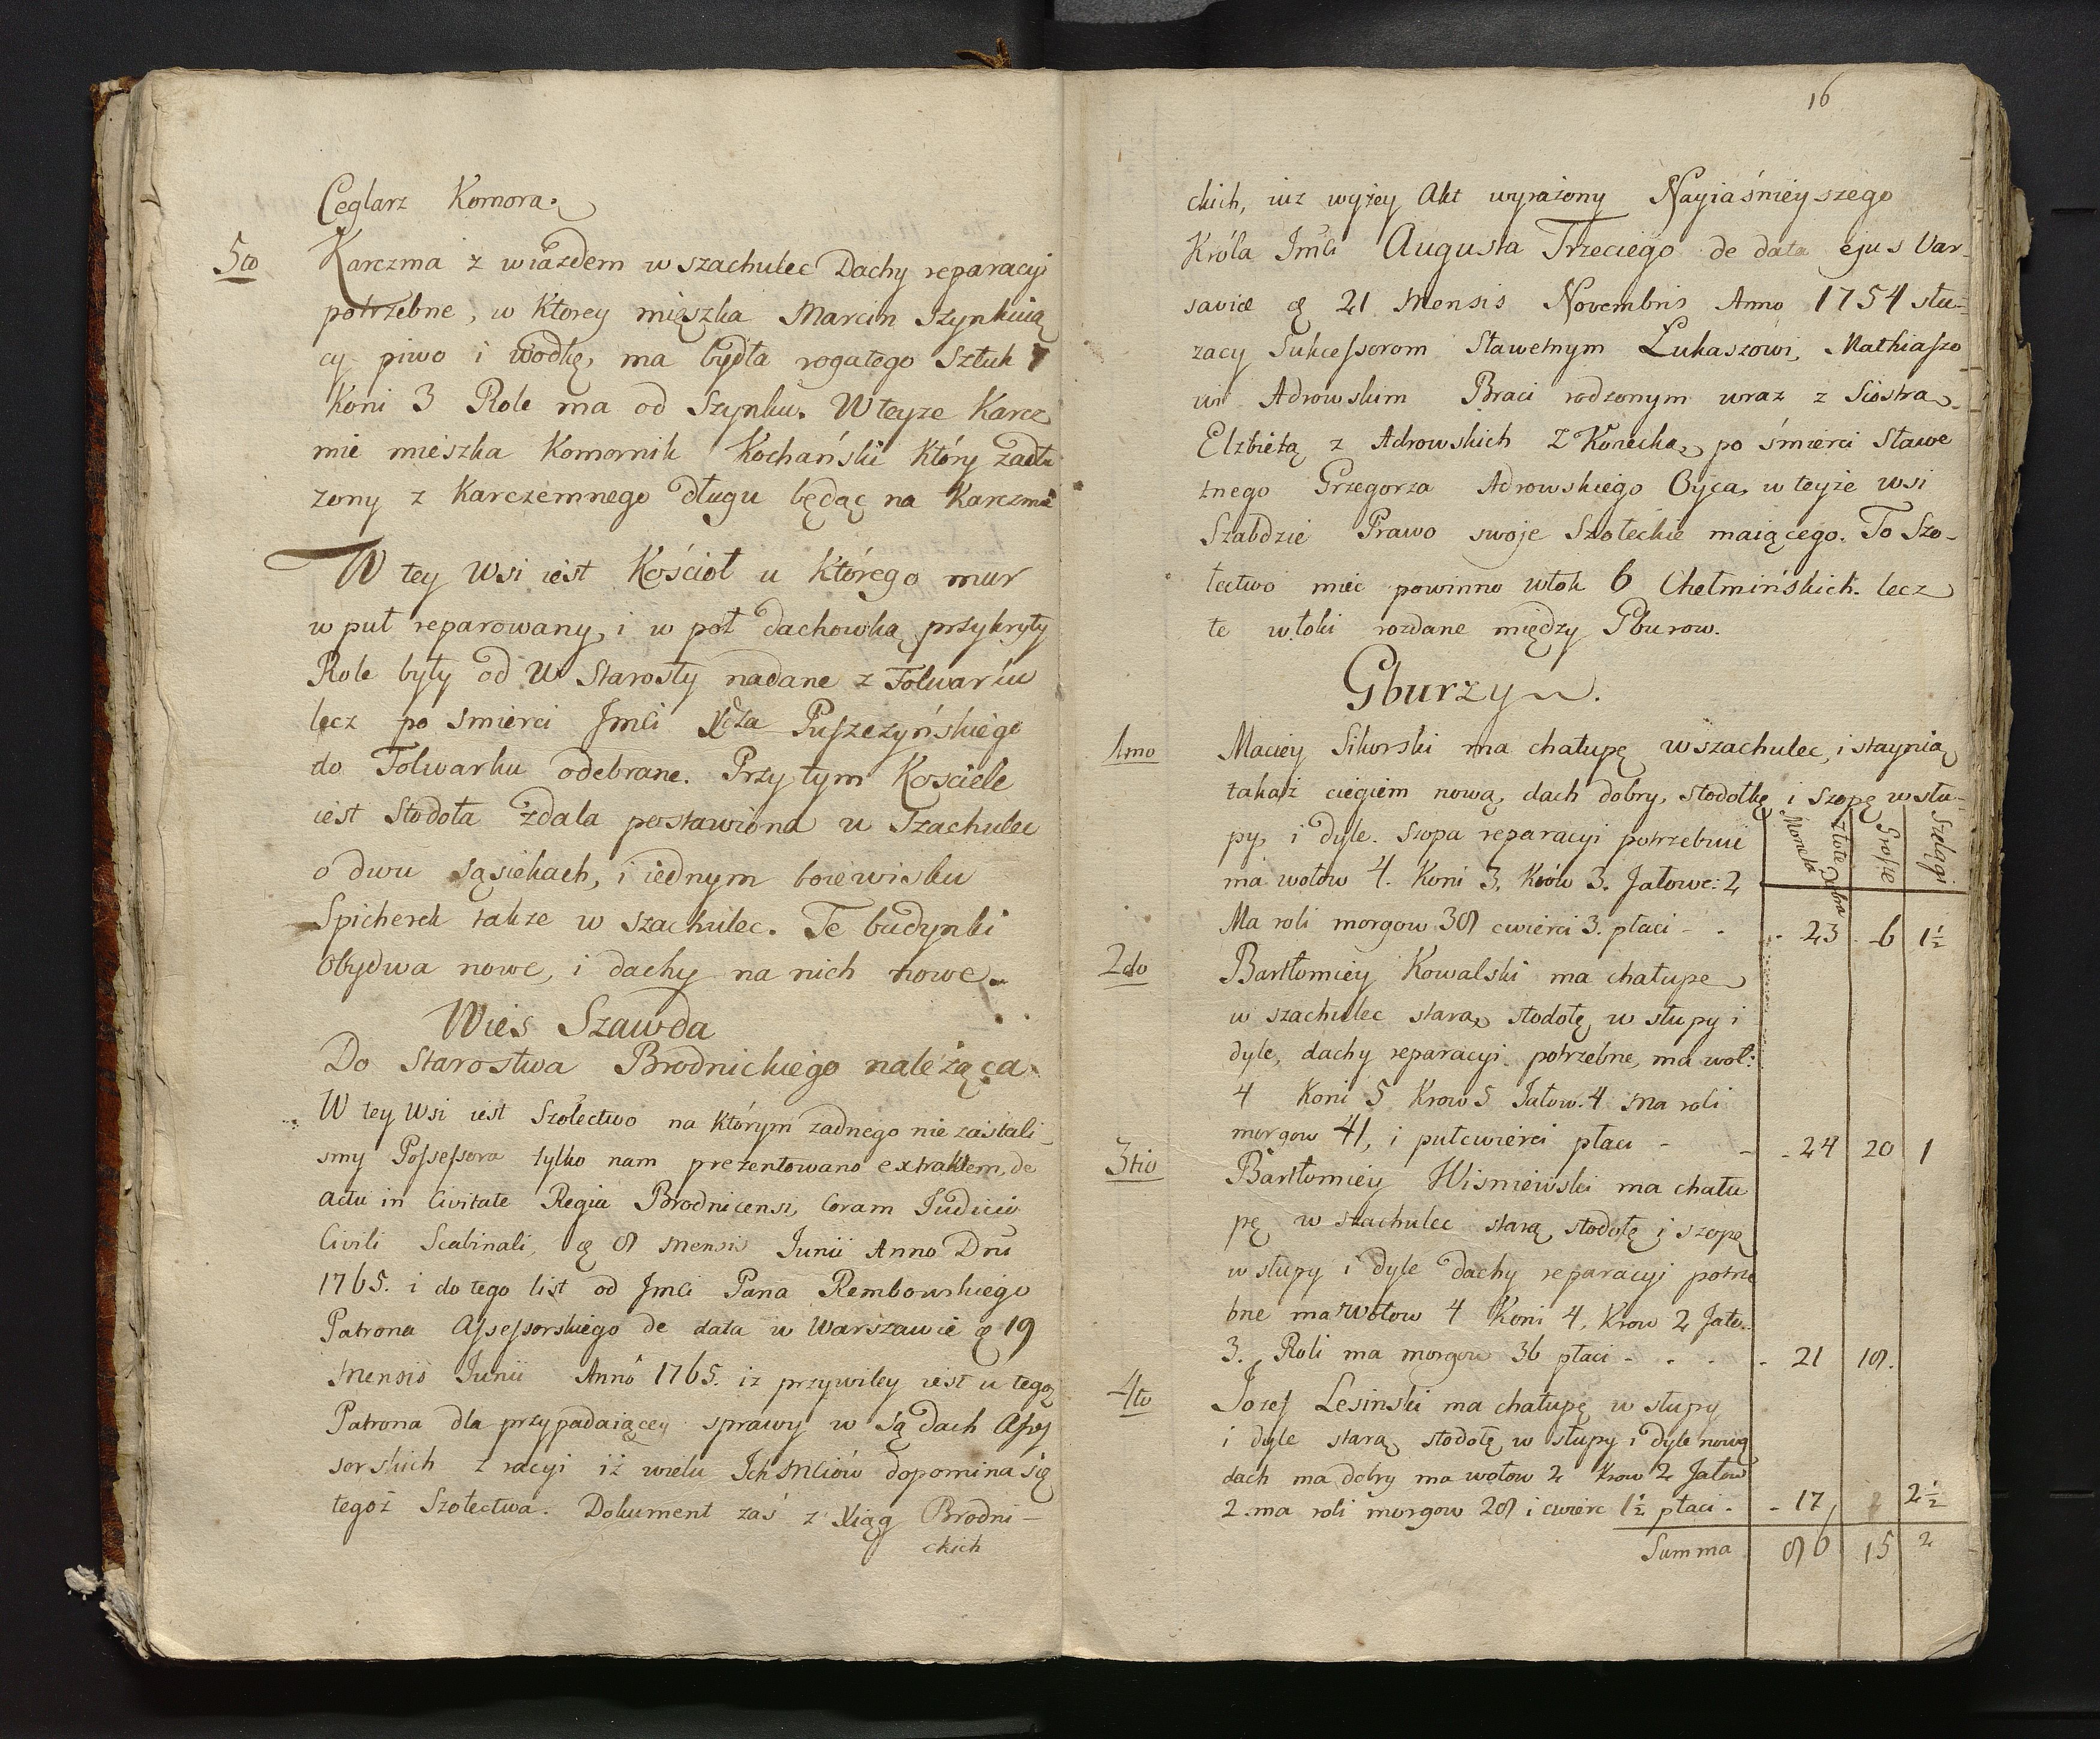 Ceglarz Komora.
5to Karczma z wiazdem w szachulec Dachy reparacyi
potrzebne, w ktorey mięszka Marcin Szynkuią
cy piwo i wodkę, ma bydła rogatego Sztuk 7
Koni 3 Role ma od Szynku. W teyze Karcz
mie mieszka Komornik Kochański który zadłu
zony z Karczemnego długu będąc na Karczmie
W tey Wsi iest Kościoł u którego mur
w puł reparowany, i w poł dachowką przykryty
Role były od W Starosty nadane z Folwarku
lecz po smierci Jmci Xdza Puszczyńskiego
do Folwarku odebrane. Przy tym Kosciele
iest Stodoła zdala postawiona w Szachulec
o dwu sąsiekach, i iednym boiewisku
Spicherek takze w szachulec. Te budynki
Obydwa nowe, i dachy na nich nowe.
Wies Szawda
Do Starostwa Brodnickiego należąca.
W tey Wsi iest Szołectwo na którym zadnego nie zastali-
smy Possessora tylko nam prezentowano extraktem, de
actu in Civitate Regia Brodnicensi, Coram Iudicio
Civili Scabinali, 8 Mensis Iunii Anno Dni
1765. i do tego list od Jmci Pana Rembowskiego
Patrona Assessorskiego de data w Warszawie 19
Mensis Iunii Anno 1765. iz przywiley iest u tegoz
Patrona dla przypadaiącey sprawy w Sądach Asses
sorskich z racyi iż wielu Ich Mciow dopomina się
tegoż Szołectwa. Dokument zaś z Xiąg Brodni-
ckich
16
ckich, iuz wyżey Akt wyrażony Nayiaśnieyszego
Króla Jmci Augusta Trzeciego de data ejus Var-
saviæ 21 Mensis Novembris Anno 1754 słu-
zacy Sukcessorom Sławetnym Łukaszowi, Mathiaszo
wi Adrowskim Braci rodzonym wraz z Siostrą
Elzbietą z Adrowskich po śmierci Sławe
tnego Grzegorza Adrowskiego Oyca, w teyże wsi
Szabdzie Prawo swoje Szołeckie maiącego. To Szo-
łectwo miec powinno włok 6 Chełmińskich. lecz
te włoki rozdane między Gburow.
Gburzy.
1mo Maciey Sikorski ma chałupę w szachulec, i staynią
takąż ciegiem nową, dach dobry, stodołkę i Szopę w słu-
py, i dyle. Szopa reparacyi potrzebuie
Moneta Złote Dobra Grosze Szelągi
ma wołow 4. Koni 3. Krów 3. Jałowc: 2
Ma roli morgow 38 cwierci 3. płaci - - 23 - 6 1½
2do Bartłomiey Kowalski ma chałupe
w szachulec starą, stodołę w słupy i
dyle, dachy reparacyi potrzebne, ma woł:
4 Koni 5 Krow 5 Jałow. 4 Ma roli
morgow 41, i pułcwierci płaci - - 24 20 1
3tio Bartłomiey Wisniewski ma chału
pę w szachulec starą, stodołę i szopę
w słupy i dyle dachy reparacyi potrze
bne ma Wołow 4 Koni 4. Krow 2 Jało.
3. Roli ma morgow 36 płaci - - - 21 18.
4to Jozef Lesinski ma chałupę w słupy
i dyle starą stodołę w słupy i dyle nową
dach ma dobry ma wołow 2 Krow 2 Jałow
2. ma roli morgow 28 i cwierc 1½ płaci - - 17 2 2½
Summa 86 15 2